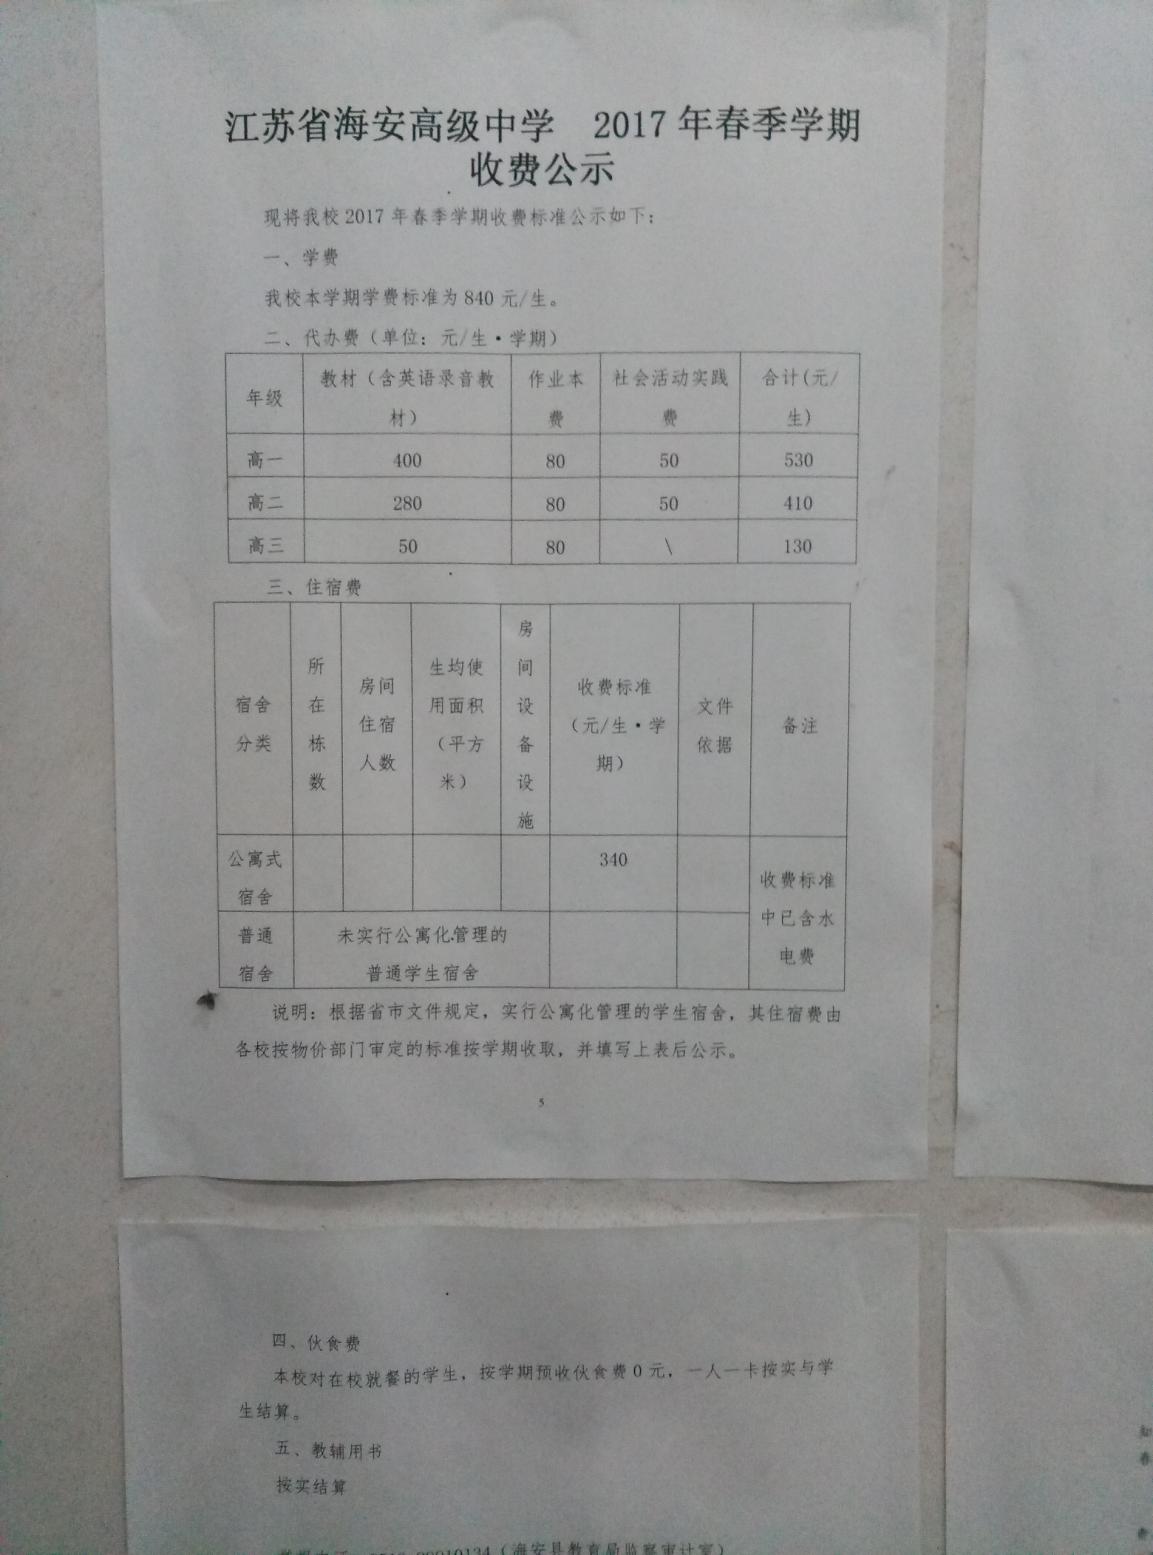 江苏省海安高级中学 2017年春季学期
收费公示
现将我校2017年春季学期收费标准公示如下：
一、学费
我校本学期学费标准为840元/生。
二、代办费（单位：元/生·学期）
年级 教材（含英语录音教材） 作业本费 社会活动实践费 合计(元/生)
高一 400 80 50 530
高二 280 80 50 410
高三 50 80 \ 130
三、住宿费
宿舍分类 所在栋数 房间住宿人数 生均使用面积（平方米） 房间设备设施 收费标准（元/生·学期） 文件依据 备注
公寓式宿舍 340 收费标准中已含水电费
普通宿舍 未实行公寓化管理的普通学生宿舍
说明：根据省市文件规定，实行公寓化管理的学生宿舍，其住宿费由
各校按物价部门审定的标准按学期收取，并填写上表后公示。
5
四、伙食费
本校对在校就餐的学生，按学期预收伙食费0元，一人一卡按实与学
生结算。
五、教辅用书
按实结算
（海安县教育局监察审计室）